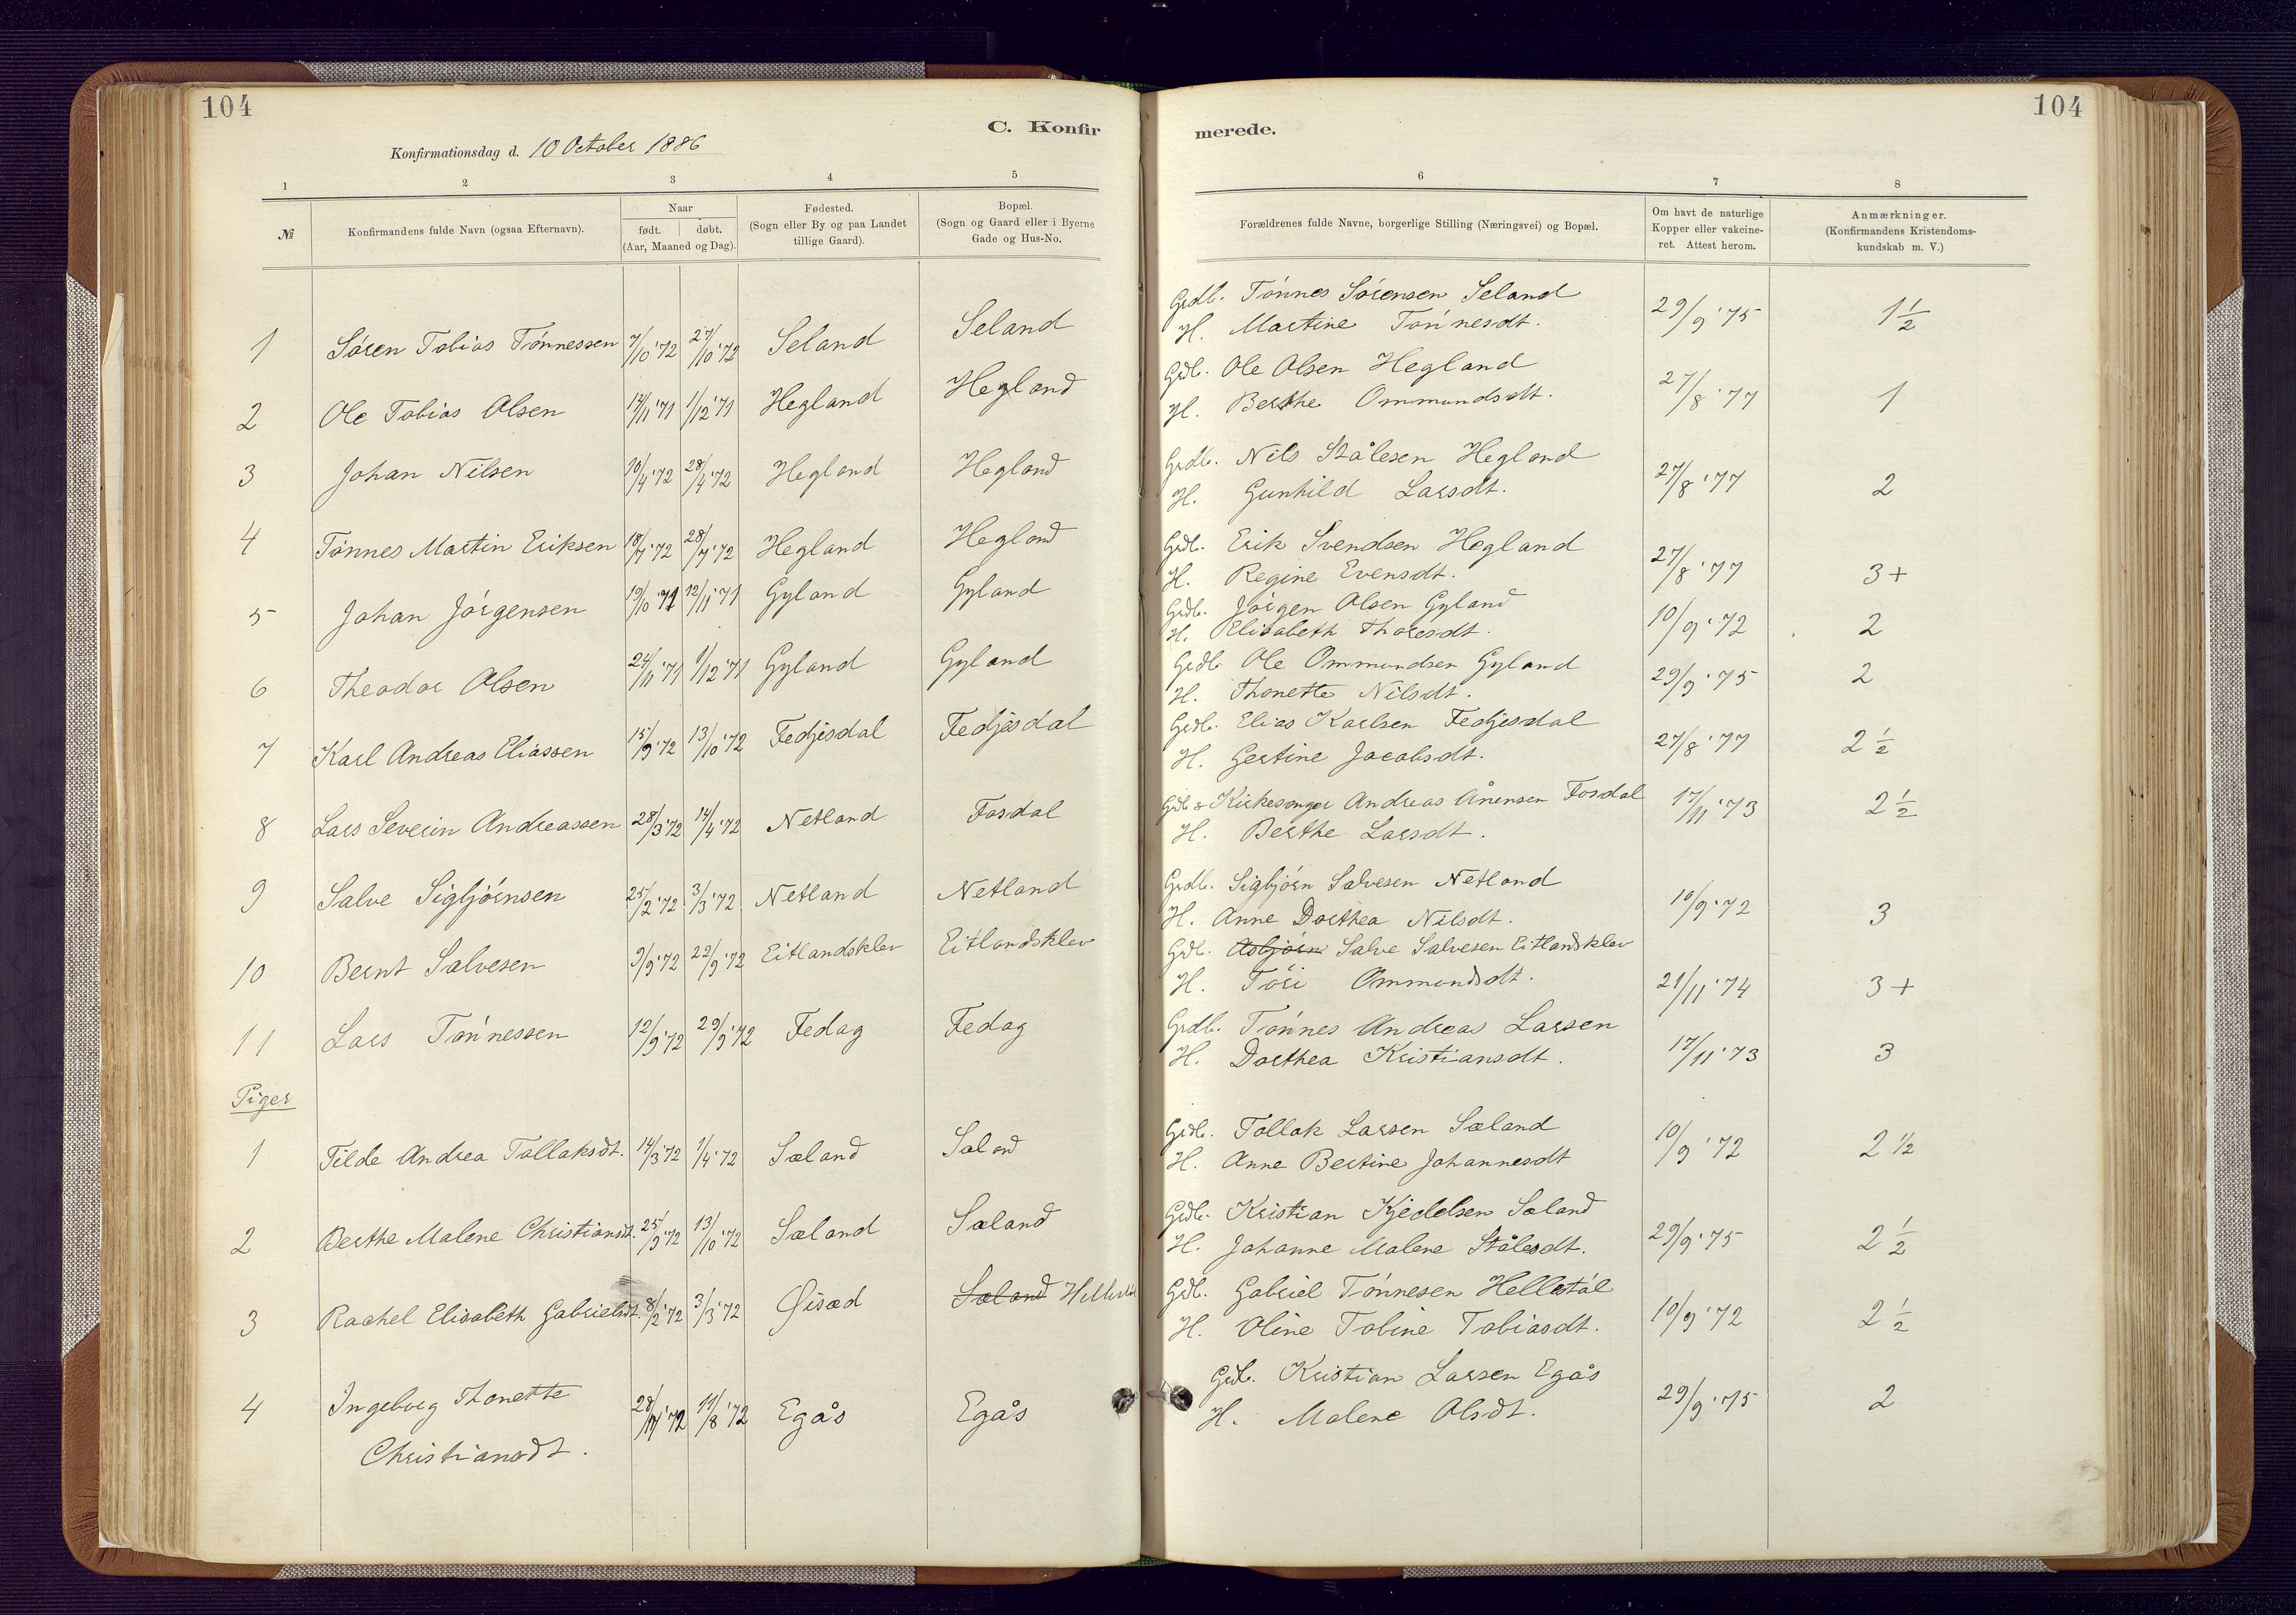 104
C. Konfir
Konfirmationsdag d. 10 October 1886
1 2 3 4 5
№ Konfirmandens fulde Navn (ogsaa Efternavn). Naar født. døbt. (Aar, Maaned og Dag). Fødested. (Sogn eller By og paa Landet tillige Gaard). Bopæl. (Sogn og Gaard eller i Byerne Gade og Hus-No.
1 Sören Tobias Tönnessen 7/10 '72 27/10 '72 Seland Seland
2 Ole Tobias Olsen 14/11 '71 1/12 '71 Hegland Hegland
3 Johan Nilsen 10/4 '72 28/4 '72 Hegland Hegland
4 Tönnes Martin Eriksen 18/7 '72 28/7 '72 Hegland Hegland
5 Johan Jörgensen 19/10 '71 12/11 '71 Gyland Gyland
6 Theodor Olsen 24/11 '71 1/12 '71 Gyland Gyland
7 Karl Andreas Eliassen 15/9 '72 13/10 '72 Fedjesdal Fedjesdal
8 Lars Severin Andreassen 28/3 '72 14/4 '72 Netland Fosdal
9 Salve Sigbjörnsen 25/2 '72 3/3 '72 Netland Netland
10 Bernt Salvesen 9/9 '72 22/9 '72 Eitlandsklev Eitlandsklev
11 Lars Tönnessen 12/9 '72 29/9 '72 Fedog Fedog
Piger
1 Tilde Andrea Tollaksdt. 14/3 '72 1/4 '72 Sæland Sæland
2 Berthe Malene Christiansdt. 25/9 '72 13/10 '72 Sæland Sæland
3 Rachel Elisabeth Gabrielsdt. 8/2 '72 3/3 '72 Öisæd Sæland
4 Ingeborg Thonette 28/7 '72 11/8 '72 Egås Egås
Christiansdt.
104
merede.
6 7 8
Forældrenes fulde Navne, borgerlige Stilling (Næringsvei) og Bopæl. Om havt de naturlige Kopper eller vakcineret. Attest herom. Anmærkninger. (Konfirmandens Kristendomskundskab m. V.)
Grdb. Tönnes Sörensen Seland
H. Martine Tönnesdt. 29/9 '75 1 1/2
Grdb. Ole Olsen Hegland
H. Berthe Ommundsdt. 27/8 '77 1
Grdb. Nils Stålesen Hegland
H. Gunhild Larsdt. 27/8 '77 2
Grdb. Erik Svendsen Hegland
H. Regine Evensdt. 27/8 '77 3+
Grdb. Jörgen Olsen Gyland
H. Elisabeth Thoresdt. 10/9 '72 2
Grdb. Ole Ommundsen Gyland
H. Thonette Nilsdt. 29/9 '75 2
Grdb. Elias Karlsen Fedjesdal
H. Gertine Jacobsdt. 27/8 '77 2 1/2
Grdb & Kirkesanger Andreas Ånensen Fosdal
H. Berthe Larsdt. 17/11 '73 2 1/2
Grdb. Sigbjörn Salvesen Netland
H. Anne Dorthea Nilsdt. 10/9 '72 3
Grdb. Asbjörn Salve Salvesen Eitlandsklev
H. Töri Ommundsdt. 21/11 '74 3+
Grdb. Tönnes Andreas Larsen
H. Dorthea Kristiansdt. 17/11 '73 3
Grdb. Tollak Larsen Sæland
H. Anne Bertine Johannesdt 10/9 '72 2 1/2
Grdb. Kristian Kjeldelsen Sæland
H. Johanne Malene Stålesdt. 29/9 '75 2 1/2
Grdb. Gabriel Tönnesen Hellstöl
H. Oline Tobine Tobiasdt. 10/9 '72 2 1/2
Grdb. Kristian Larsen Egås
H. Malene Olsdt. 29/9 '75 2